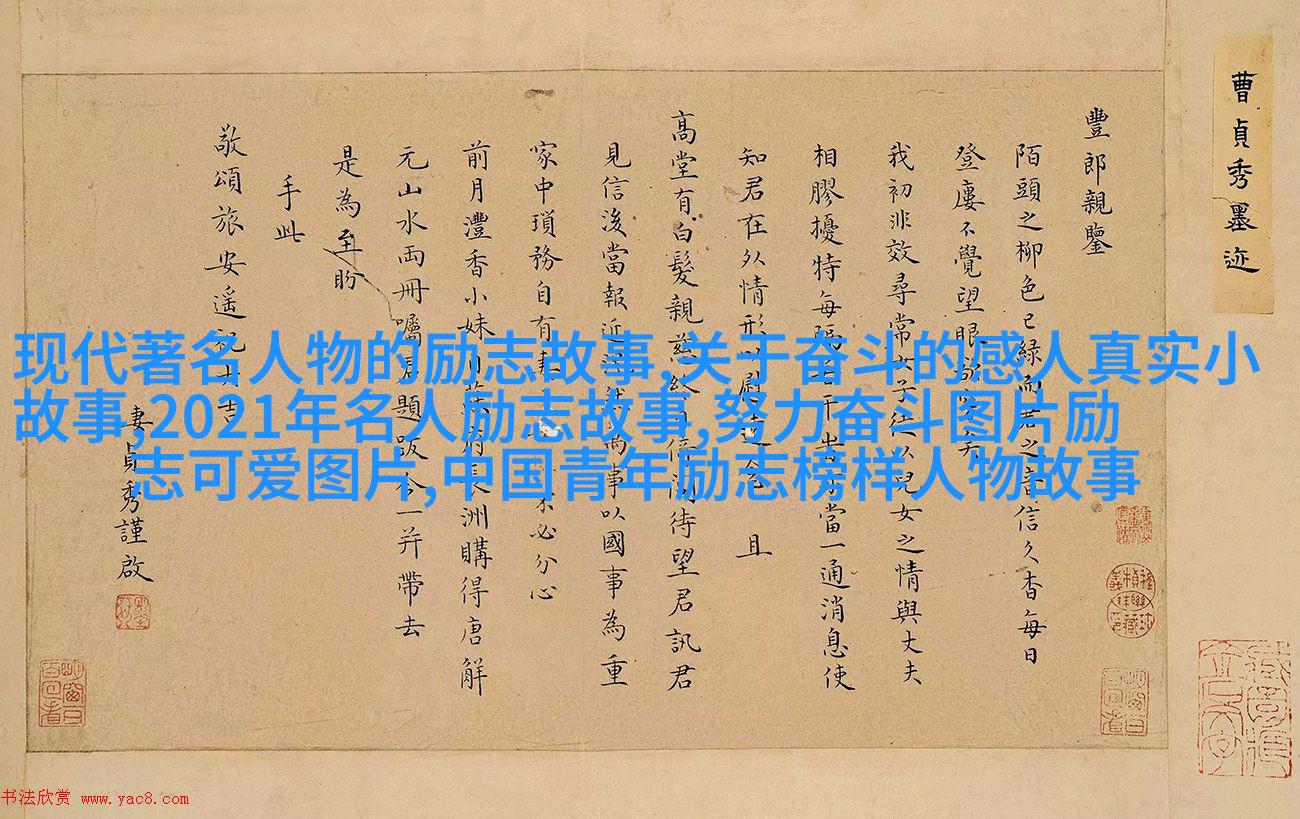 曹貞秀墨迹
豐郎親鑒
陌頭之柳色已綠而君之音信久杳每日
登廔不覺望眼
我初非效尋常女子徒以兒女之情與丈夫
相膠擾特每隔干當一通消息使
知君在外情形以慰遠 且
高堂有白髮親慈終日倚閭待望君訊君
見信後當報近事以國事為重
家中瑣務自有妻必分心
前月灃香小妹長洲購得唐解
元山水兩冊囑君題跋今一并帶去
是為至盼
手此
敬頌旅安遙祝吉
妻貞秀謹啟
现代著名人物的励志故事,关于奋斗的感人真实小
故事,2021年名人励志故事,努力奋斗图片励
志可爱图片,中国青年励志榜样人物故事
书法欣赏 www.yac8.com